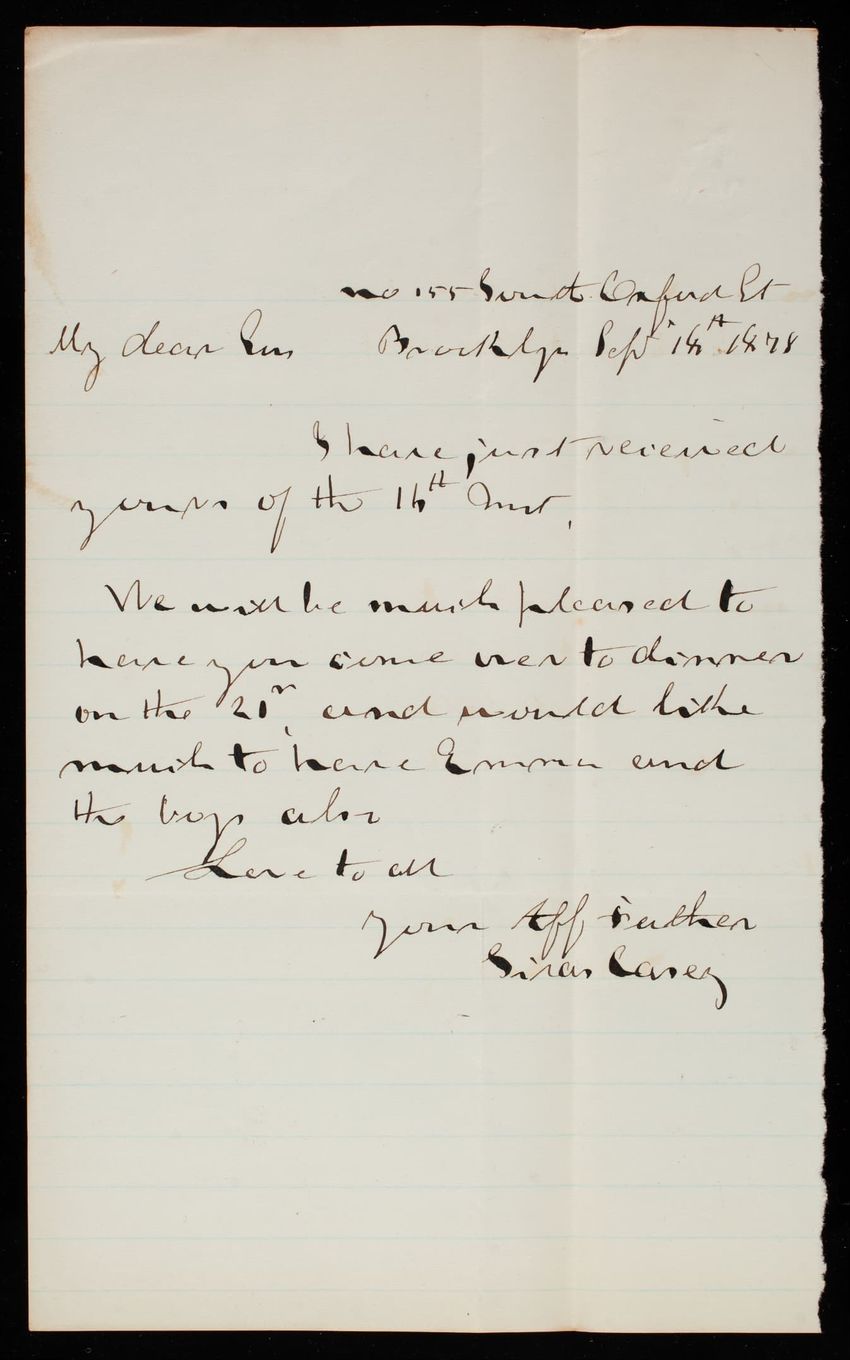 No 155 South Oxford St
My dear Son Brooklyn Sept 18th 1878
I have just received
yours of the 16th Inst,
We will be much pleased to
have you come over to dinner
on the 21st, and would like
much to have Emma and
the boys also
Love to all
Your Aff father
Silas Casey